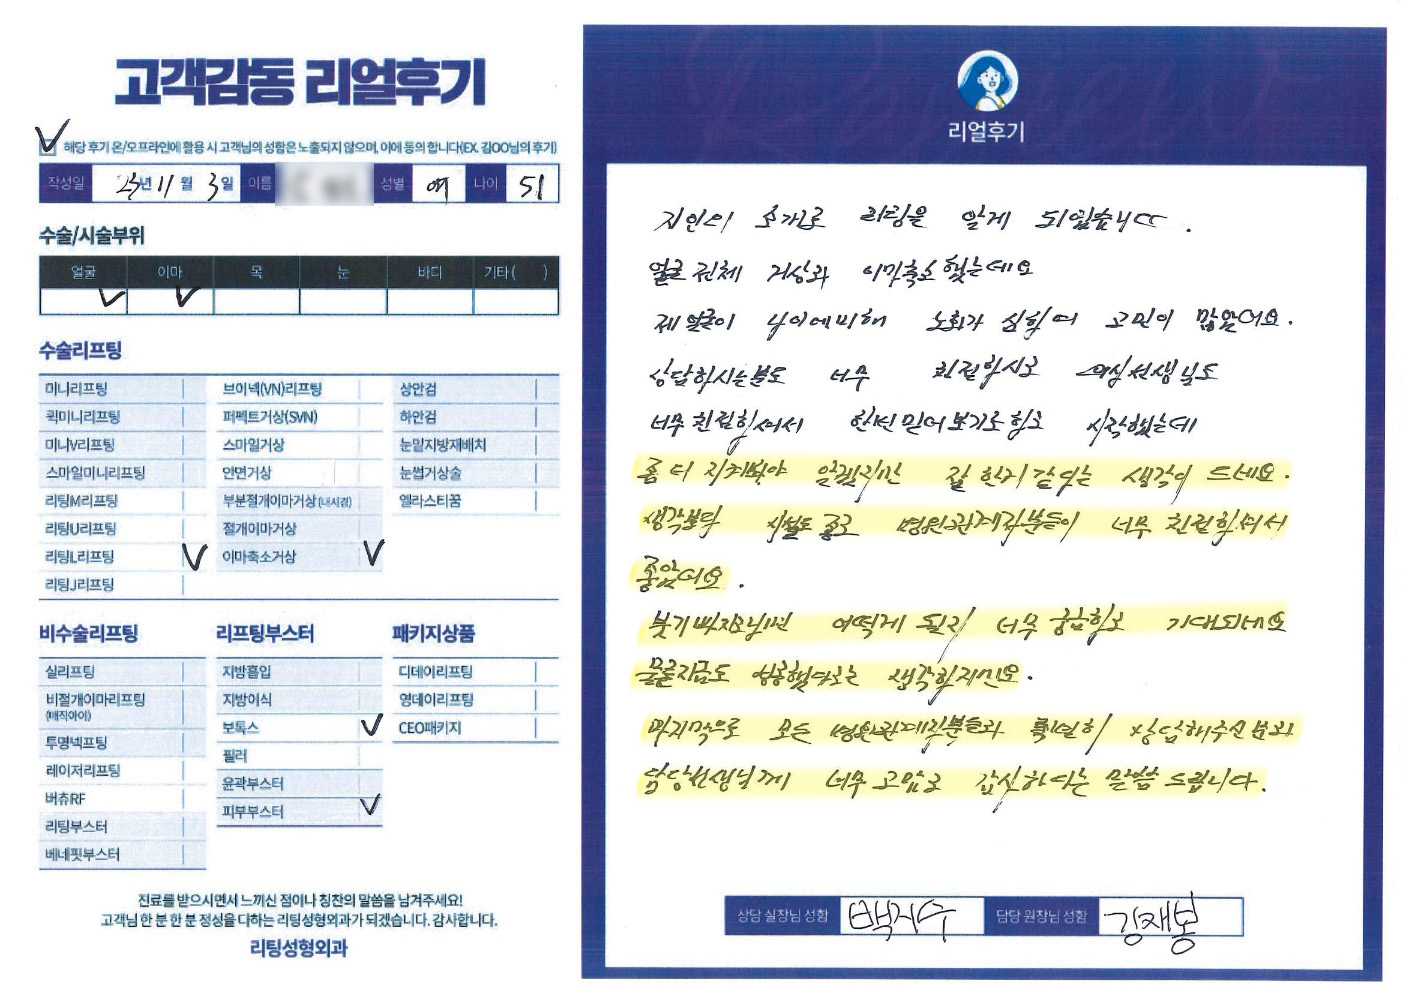 고객감동 리얼후기
해당 후기 온/오프라인에 활용 시 고객님의 성함은 노출되지 않으며, 이에 동의 합니다(EX. 김OO님의 후기)
작성일 23년 11월 3일 이름 성별 여 나이 51
수술/시술부위
얼굴 이마 목 눈 바디 기타( )
수술리프팅
미니리프팅 브이넥(VN)리프팅 상안검
퀵미니리프팅 퍼펙트거상(SVN) 하안검
미니V리프팅 스마일거상 눈밑지방재배치
스마일미니리프팅 안면거상 눈썹거상술
리팅M리프팅 부분절개이마거상(내시경) 엘라스티꿈
리팅U리프팅 절개이마거상
리팅L리프팅 이마축소거상
리팅J리프팅
비수술리프팅 리프팅부스터 패키지상품
실리프팅 지방흡입 디데이리프팅
비절개이마리프팅 지방이식 영데이리프팅
(매직아이)
보톡스 CEO패키지
투명넥프팅 필러
레이저리프팅 윤곽부스터
버츄RF 피부부스터
리팅부스터
베네핏부스터
진료를 받으시면서 느끼신 점이나 칭찬의 말씀을 남겨주세요!
고객님 한 분 한 분 정성을 다하는 리팅성형외과가 되겠습니다. 감사합니다.
리팅성형외과
리얼후기
지인의 소개로 리팅을 알게 되었습니다.
얼굴전체 거상과 이마축소 했는데요
제 얼굴이 나이에비해 노화가 심하여 고민이 많았어요.
상담하시는분도 너무 친절하시고 의사선생님도
너무 친절하셔서 한번 믿어보기로 하고 시작했는데
좀 더 지켜봐야 알겠지만 잘 한거 같다는 생각이 드네요.
생각보다 시설도 좋고 병원관계자분들이 너무 친절하셔서
좋았어요.
붓기 빠지고나면 어떻게 될지 너무 궁금하고 기대되네요
물론지금도 성공했다고는 생각하지만요.
마지막으로 모든 병원관계자분들과 특별히 상담해주신 분과
담당선생님께 너무 고맙고 감사하다는 말씀 드립니다.
상담 실장님 성함 백지수 담당 원장님 성함 강재봉